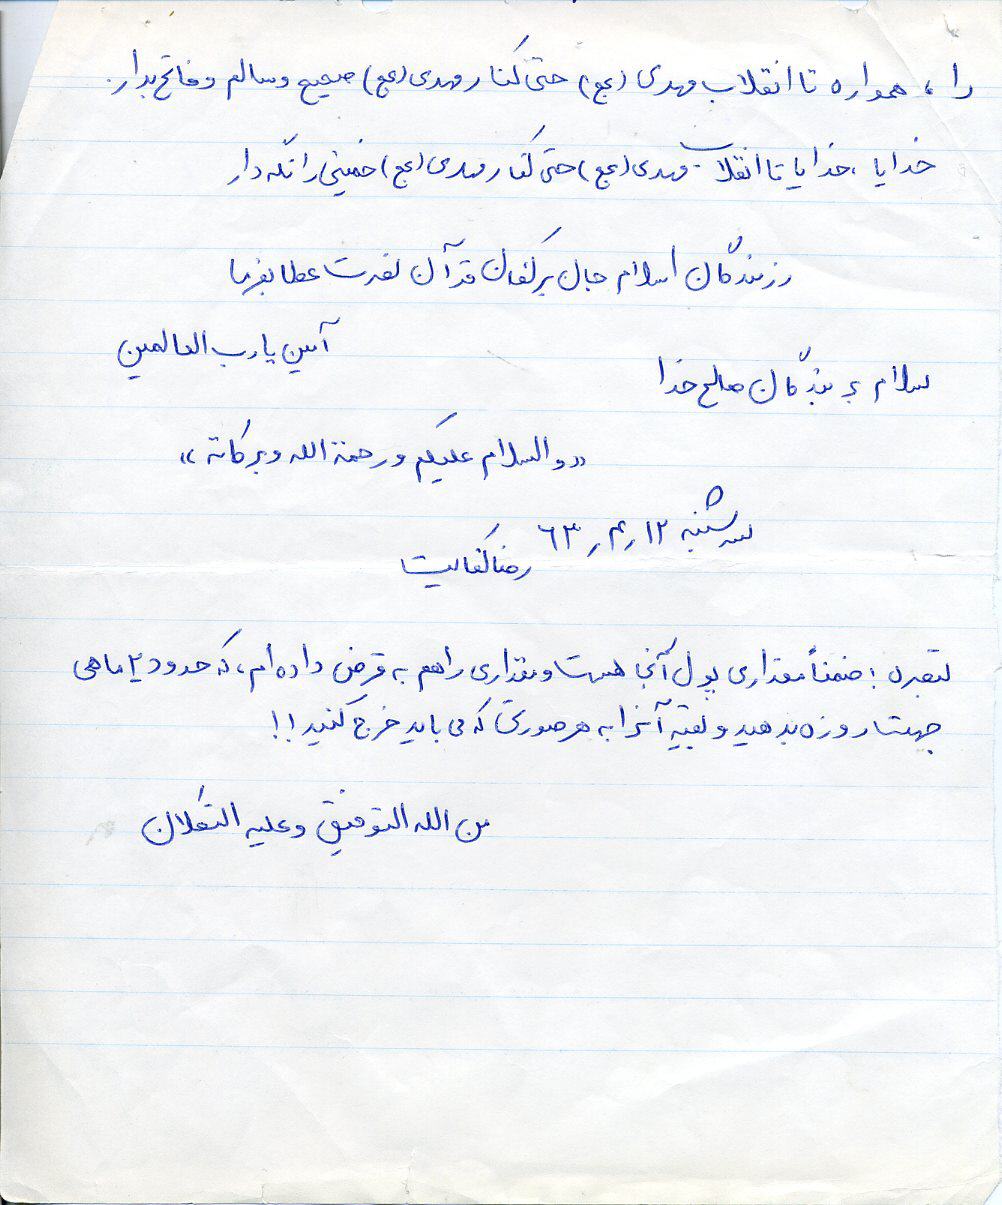 را، همواره تا انقلاب مهدی (عج) حتی کنار مهدی (عج) صحیح و سالم و فاتح بدار.
خدایا، خدایا تا انقلاب مهدی (عج) حتی کنار مهدی (عج) خمینی را نگه دار
رزمندگان اسلام جان برکفان قرآن نصرت عطا بفرما
آمین یا رب العالمین
سلام بر بندگان صالح خدا
«والسلام علیکم و رحمة الله و برکاته»
سه شنبه ۶۳٫۴٫۱۲
رضا کفایت
تبصره: ضمناً مقداری پول آنجا هست و مقداری را هم به قرض داده‌ام، که حدود ۲ ماهی
جهت روزه بدهید و بقیه آنرا به هر صورتی که می باید خرج کنید!!
من الله التوفیق و علیه التکلان